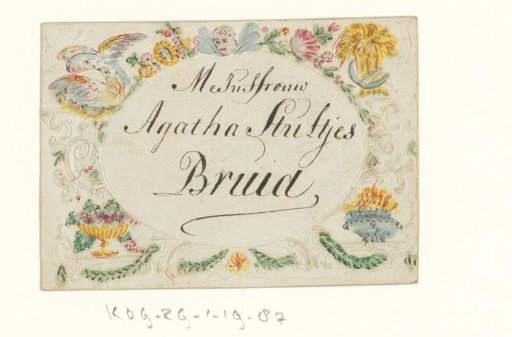 MeJuffrouw
Agatha Stultjes
Bruid
KOG-ZG-1-19-87